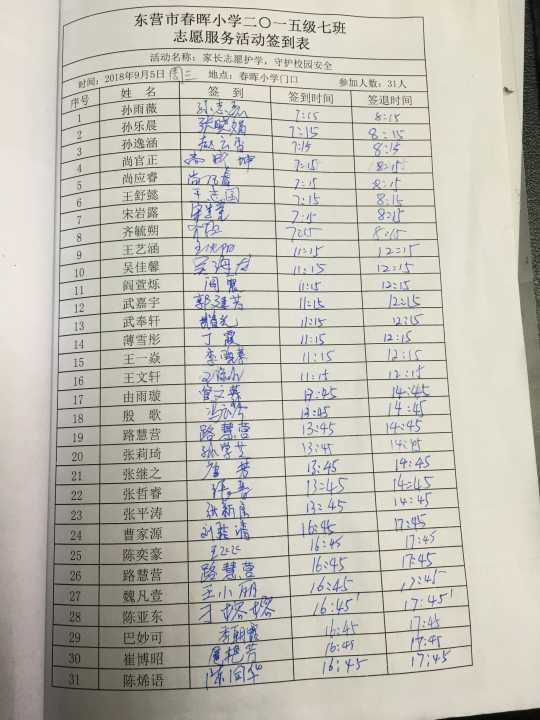 东营市春晖小学二〇一五级七班
志愿服务活动签到表
活动名称：家长志愿护学，守护校园安全
时间：2018年9月5日 周三 地点：春晖小学门口 参加人数：31人
序号 姓 名 签 到 签到时间 签退时间
1 孙雨薇 7:15 8:15
2 孙乐晨 张晓娟 7:15 8:15
3 孙逸涵 7:15 8:15
4 尚官正 7:15 8:15
5 尚应睿 7:15 8:15
6 王舒懿 王志国 7:15 8:15
7 宋岩露 7:15 8:15
8 齐毓朔 7:15 8:15
9 王艺涵 11:15 12:15
10 吴佳馨 11:15 12:15
11 阎萱烁 阎震 11:15 12:15
12 武嘉宇 郭建芳 11:15 12:15
13 武奉轩 11:15 12:15
14 薄雪彤 丁霞 11:15 12:15
15 王一焱 11:15 12:15
16 王文轩 11:15 12:15
17 由雨璇 13:45 14:45
18 殷 歌 13:45 14:45
19 路慧营 路慧营 13:45 14:45
20 张莉琦 13:45 14:45
21 张继之 13:45 14:45
22 张哲睿 13:45 14:45
23 张平涛 13:45 14:45
24 曹家源 16:45 17:45
25 陈奕豪 16:45 17:45
26 路慧营 路慧营 16:45 17:45
27 魏凡壹 王小丽 16:45 17:45
28 陈亚东 16:45 17:45
29 巴妙可 16:45 17:45
30 崔博昭 16:45 17:45
31 陈烯语 16:45 17:45